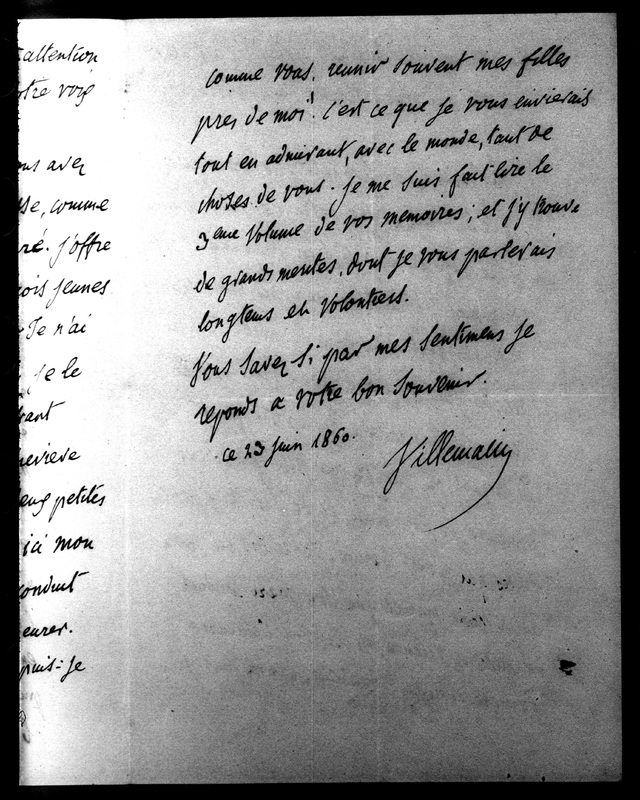 attention
otre voix
ous avez
comme
ré. j'offre
ois jeunes
Je n'ai
je le
rant
nevieve
eux petites
ici mon
conduit
eurer.
puis-je
comme vous, reunir souvent mes filles
pres de moi! C'est ce que je vous envierais
tout en admirant, avec le monde, tant de
choses de vous. je me suis fait lire le
3eme Volume de vos memoires; et j'y trouve
de grands merites, dont je vous parlerais
longtems et Volontiers.
Vous savez si par mes sentimens je
reponds a votre bon souvenir.
ce 23 juin 1860.
Villemain